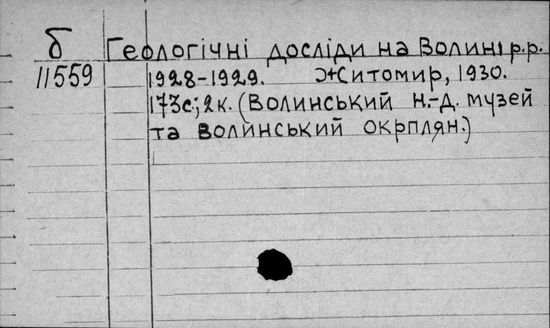 б Геологічні досліди на Волині р.р.
11559 1928-1929. Житомир, 1930.
173с; 2к. (Волинський н.-д. музей
та Волинський окрплян.)